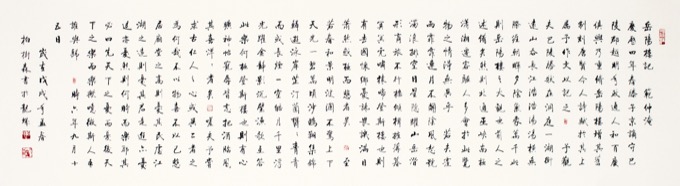 岳陽樓記 范仲淹
慶曆四年春滕子京謫守巴
陵郡越明年政通人和百廢
俱興乃重修岳陽樓增其舊
制刻唐賢今人詩賦於其上
屬予作文以記之 予觀
夫巴陵勝狀在洞庭一湖銜
遠山吞長江浩浩湯湯橫無
際涯朝暉夕陰氣象萬千此
則岳陽樓之大觀也前人之
述備矣然則北通巫峽南極
瀟湘遷客騷人多會於此覽
物之情得無異乎 若夫霪
雨霏霏連月不開陰風怒號
濁浪排空日星隱耀山岳潛
形商旅不行檣傾楫摧薄暮
冥冥虎嘯猿啼登斯樓也則
有去國懷鄉憂讒畏譏滿目
蕭然感極而悲者矣 至
若春和景明波瀾不驚上下
天光一碧萬頃沙鷗翔集錦
鱗游泳岸芷汀蘭郁郁青青
而或長煙一空皓月千里浮
光躍金靜影沉璧漁歌互答
此樂何極登斯樓也則有心
曠神怡寵辱皆忘把酒臨風
其喜洋洋者矣 嗟夫予嘗
求古仁人之心或異二者之
為何哉不以物喜不以己悲
居廟堂之高則憂其民處江
湖之遠則憂其君是進亦憂
退亦憂然則何時而樂耶其
必曰先天下之憂而憂後天
下之樂而樂歟噫微斯人吾
誰與歸 時六年九月十
五日
歲在戊戌年
書於